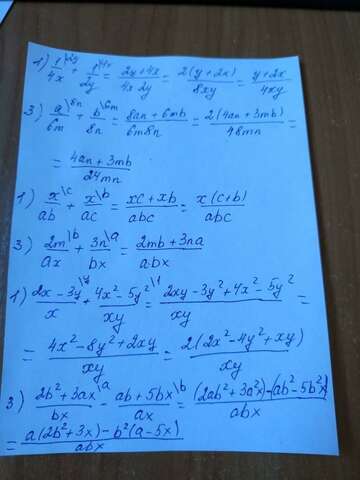 1) 1\2y/4x + 1\4x/2y = 2y+4x/4x 2y = 2(y+2x)/8xy = y+2x/4xy
3) a\8n/6m + b\6m/8n = 8an+6mb/6m8n = 2(4an+3mb)/48mn =
= 4an+3mb/24mn
1) x\c/ab + x\b/ac = xc+xb/abc = x(c+b)/abc
3) 2m\b/ax + 3n\a/bx = 2mb+3na/abx
1) 2x-3y\y/x + 4x²-5y²\1/xy = 2xy-3y²+4x²-5y²/xy =
= 4x²-8y²+2xy/xy = 2(2x²-4y²+xy)/xy
3) 2b²+3ax\a/bx - ab+5bx\b/ax = (2ab²+3a²x)-(ab²-5b²x)/abx
= a(2b²+3x)-b²(a-5x)/abx